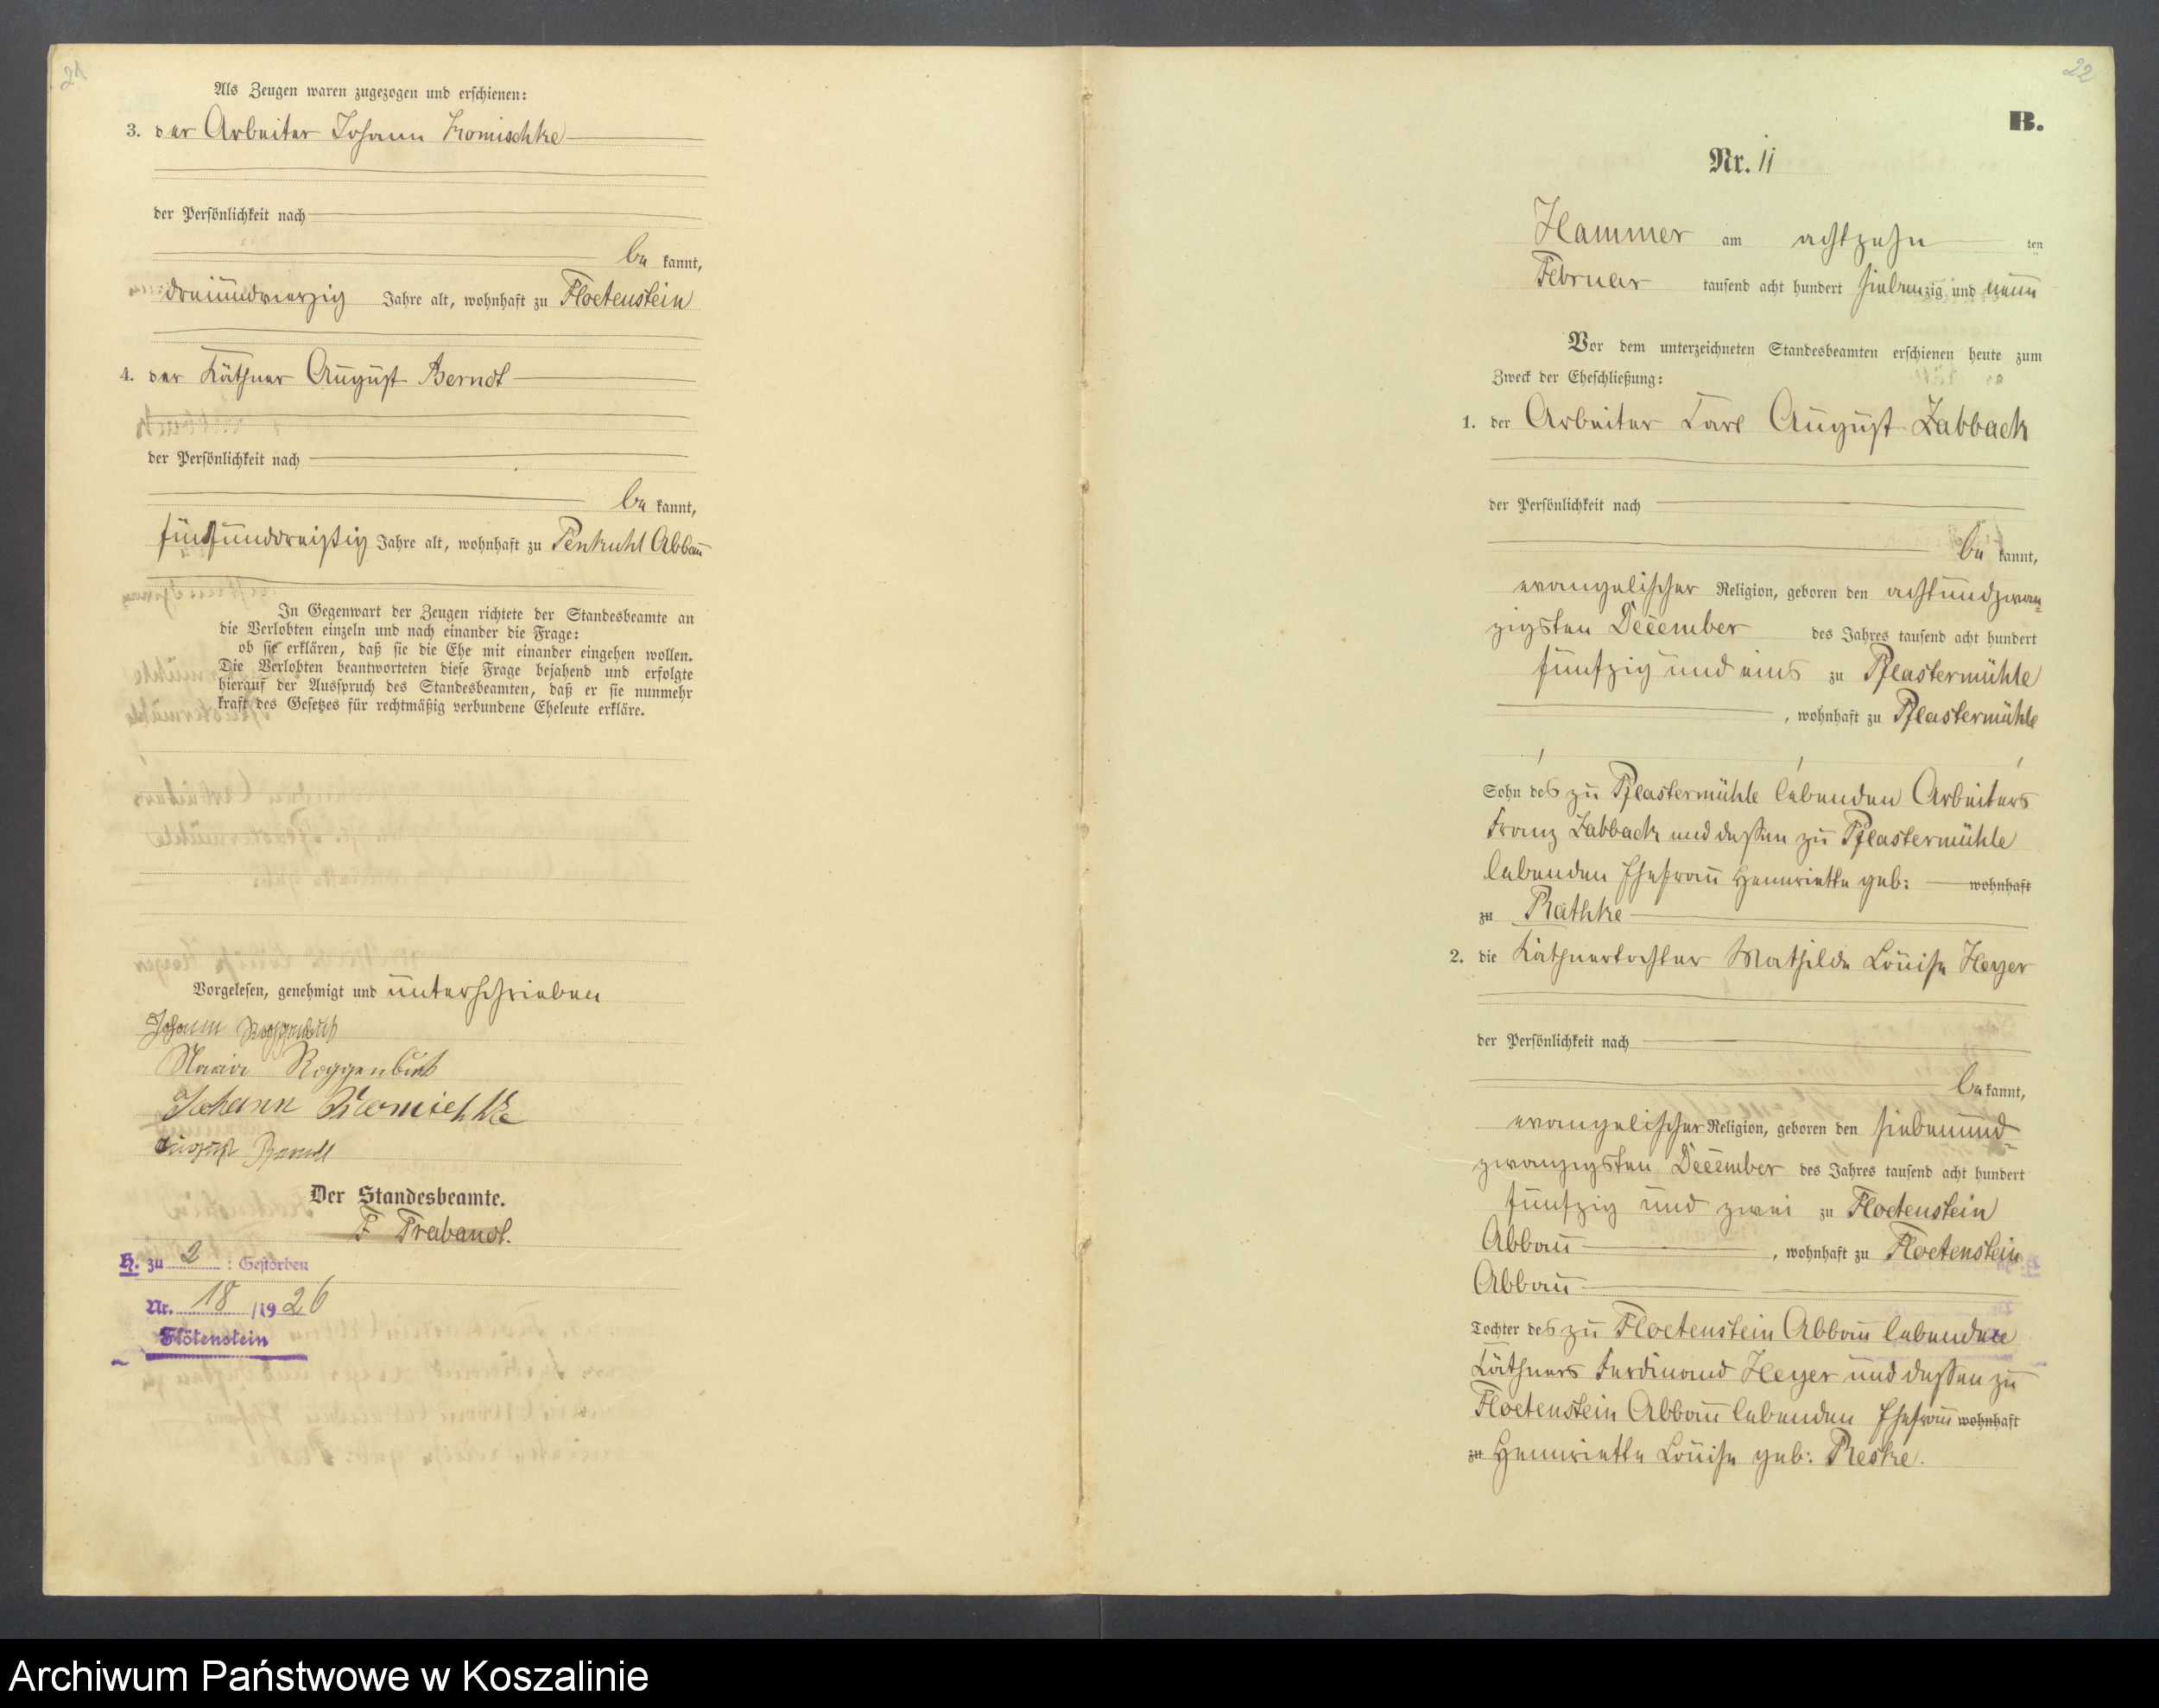 21
Als Zeugen waren zugezogen und erschienen:
3. der Arbeiter Johann Kromischke
der Persönlichkeit nach
be kannt,
dreiundvierzig Jahre alt, wohnhaft zu Floetenstein
4. der Käthner August Berndt
der Persönlichkeit nach
be kannt,
fünfunddreißig Jahre alt, wohnhaft zu Penkuhl Abbau
In Gegenwart der Zeugen richtete der Standesbeamte an
die Verlobten einzeln und nach einander die Frage:
ob sie erklären, daß sie die Ehe mit einander eingehen wollen.
Die Verlobten beantworteten diese Frage bejahend und erfolgte
hierauf der Ausspruch des Standesbeamten, daß er sie nunmehr
kraft des Gesetzes für rechtmäßig verbundene Eheleute erkläre.
Vorgelesen, genehmigt und unterschrieben
Johann Roggenbuck
Maria Roggenbuck
Johann Kromischke
August Berndt
Der Standesbeamte.
F Prabandt.
H. zu 2 : Gestorben
Nr. 18 /1926
Flötenstein
22
B.
Nr. 11
Hammer am achtzehn ten
Februar tausend acht hundert siebenzig und neun
Vor dem unterzeichneten Standesbeamten erschienen heute zum
Zweck der Eheschließung:
1. der Arbeiter Carl August Zabback
der Persönlichkeit nach
be kannt,
evangelischer Religion, geboren den achtundzwan-
zigsten December des Jahres tausend acht hundert
fünfzig und eins zu Pflastermühle
, wohnhaft zu Pflastermühle
Sohn des zu Pflastermühle lebenden Arbeiters
Franz Zabback und dessen zu Pflastermühle
lebenden Ehefrau Hennriette geb: wohnhaft
zu Rathke
2. die Käthnertochter Mathilde Louise Heyer
der Persönlichkeit nach
be kannt,
evangelischer Religion, geboren den siebenund-
zwanzigsten December des Jahres tausend acht hundert
fünfzig und zwei zu Floetenstein
Abbau , wohnhaft zu Floetenstein
Abbau
Tochter des zu Floetenstein Abbau lebenden
Käthners Ferdinand Heyer und dessen zu
Floetenstein Abbau lebenden Ehefrau wohnhaft
zu Hennriette Louise geb: Reske.
Archiwum Państwowe w Koszalinie